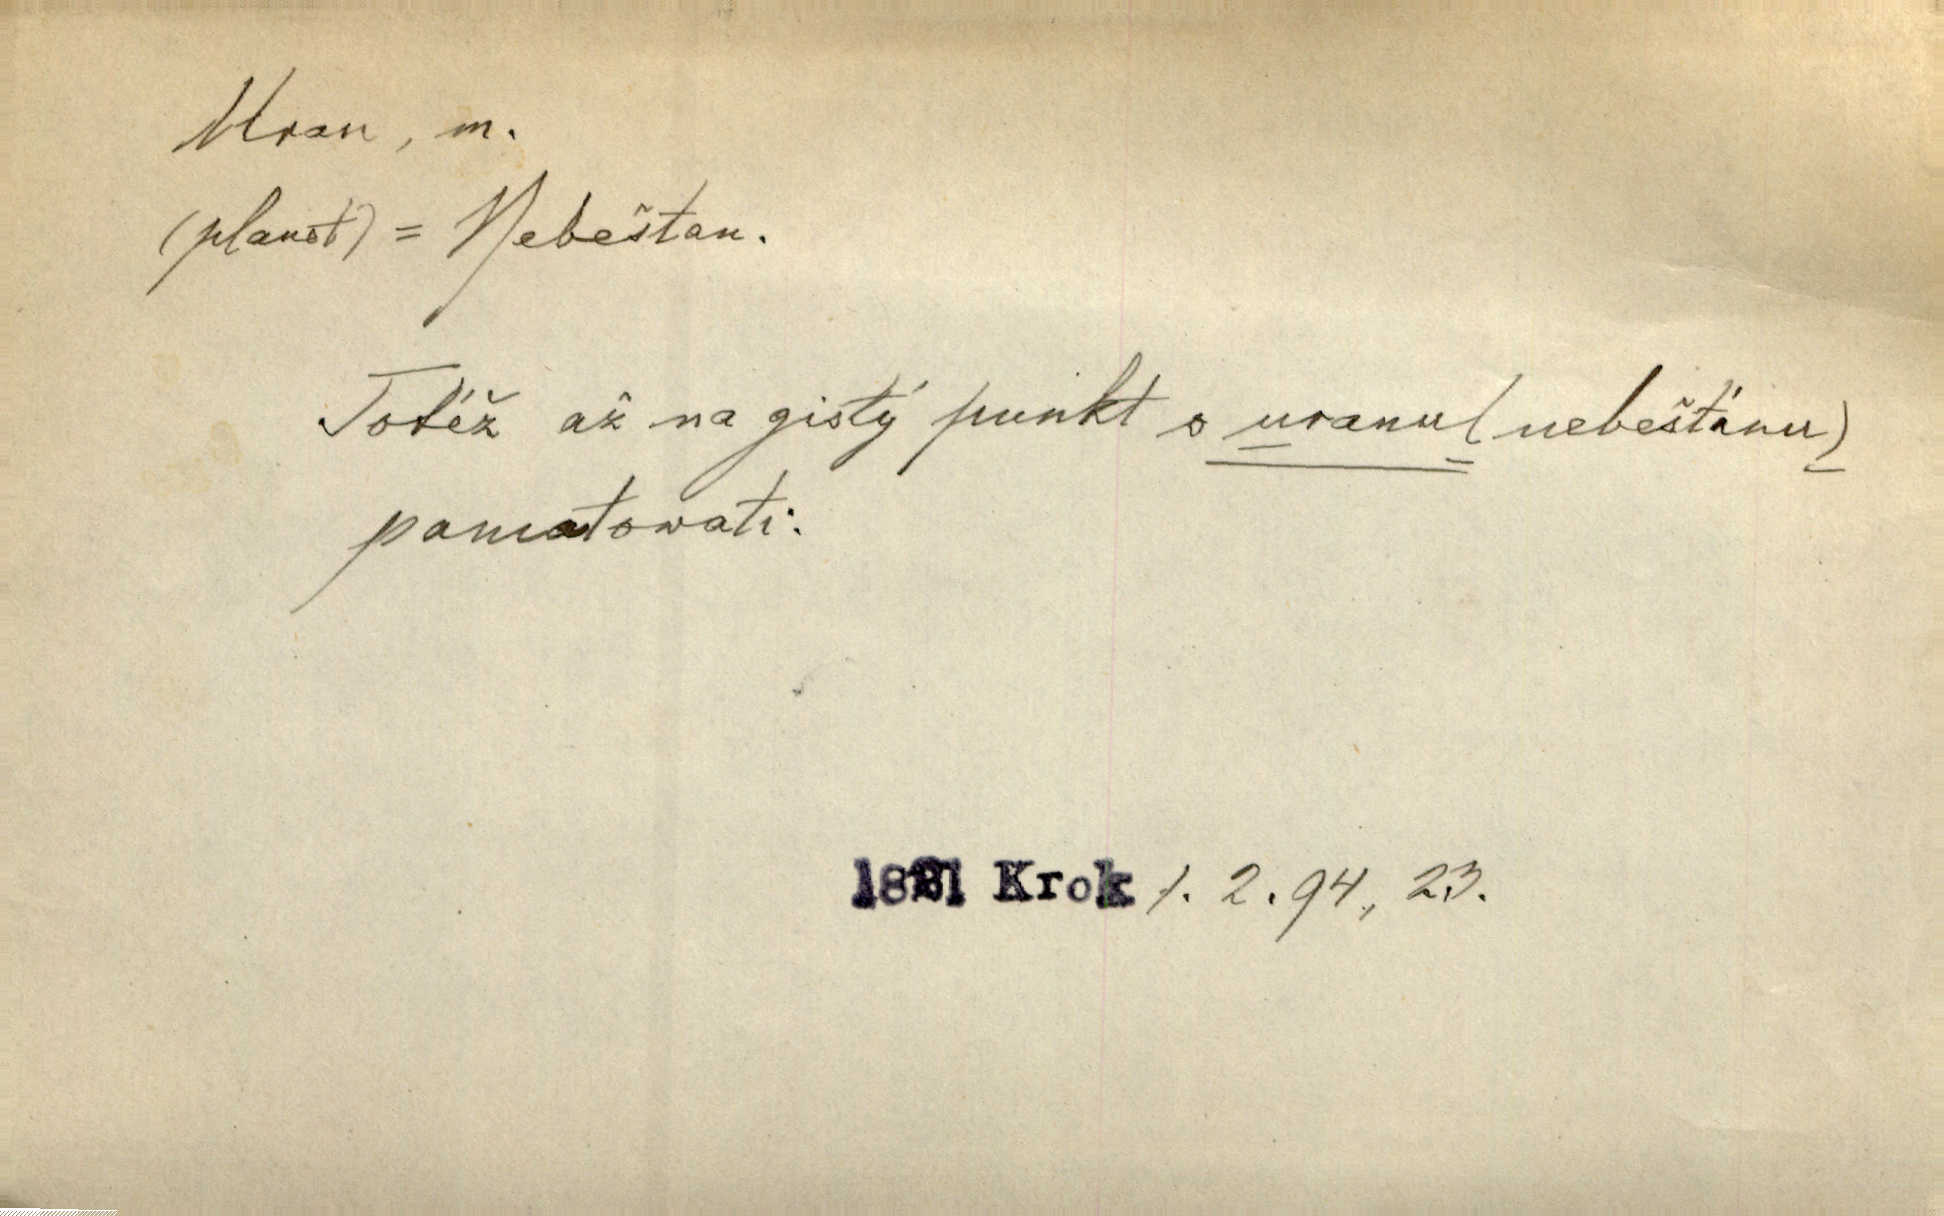 Uran, m.
(planet) = Nebeštan.
Totéž až na gistý punkt o uranu (nebeštánu)
pamatowati:
1821 Krok 1. 2. 94, 23.